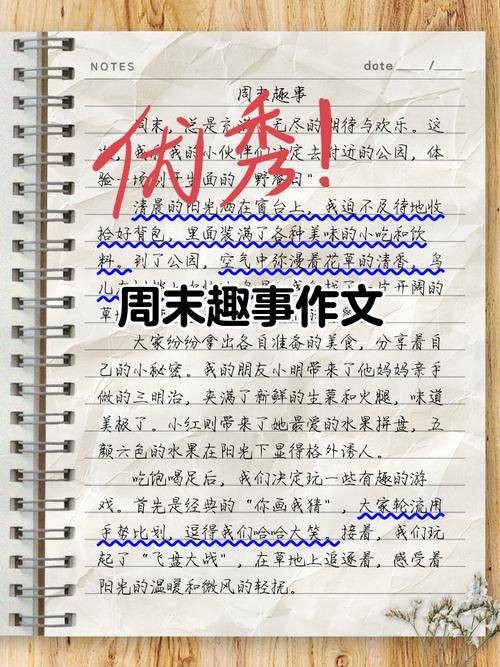 NOTES
date ____ / ____
周末趣事
优秀！
周末，总是充 无尽的期待与欢乐。这
次，我 我的小伙伴们决定去附近的公园，体
验一场别开生面的“野餐日”
清晨的阳光洒在窗台上，我迫不及待地收
拾好背包，里面装满了各种美味的小吃和饮
料。到了公园，空气中弥漫着花草的清香，鸟
儿在 片开阔的
周末趣事作文
草地
大家纷纷拿出各自准备的美食，分享着自
己的小秘密。我的朋友小明带来了他妈妈亲手
做的三明治，夹满了新鲜的生菜和火腿，味道
美极了。小红则带来了她最爱的水果拼盘，五
颜六色的水果在阳光下显得格外诱人。
吃饱喝足后，我们决定玩一些有趣的游
戏。首先是经典的“你画我猜”，大家轮流用
手势比划，逗得我们哈哈大笑。接着，我们玩
起了“飞盘大战”，在草地上追逐着，感受着
阳光的温暖和微风的轻抚。